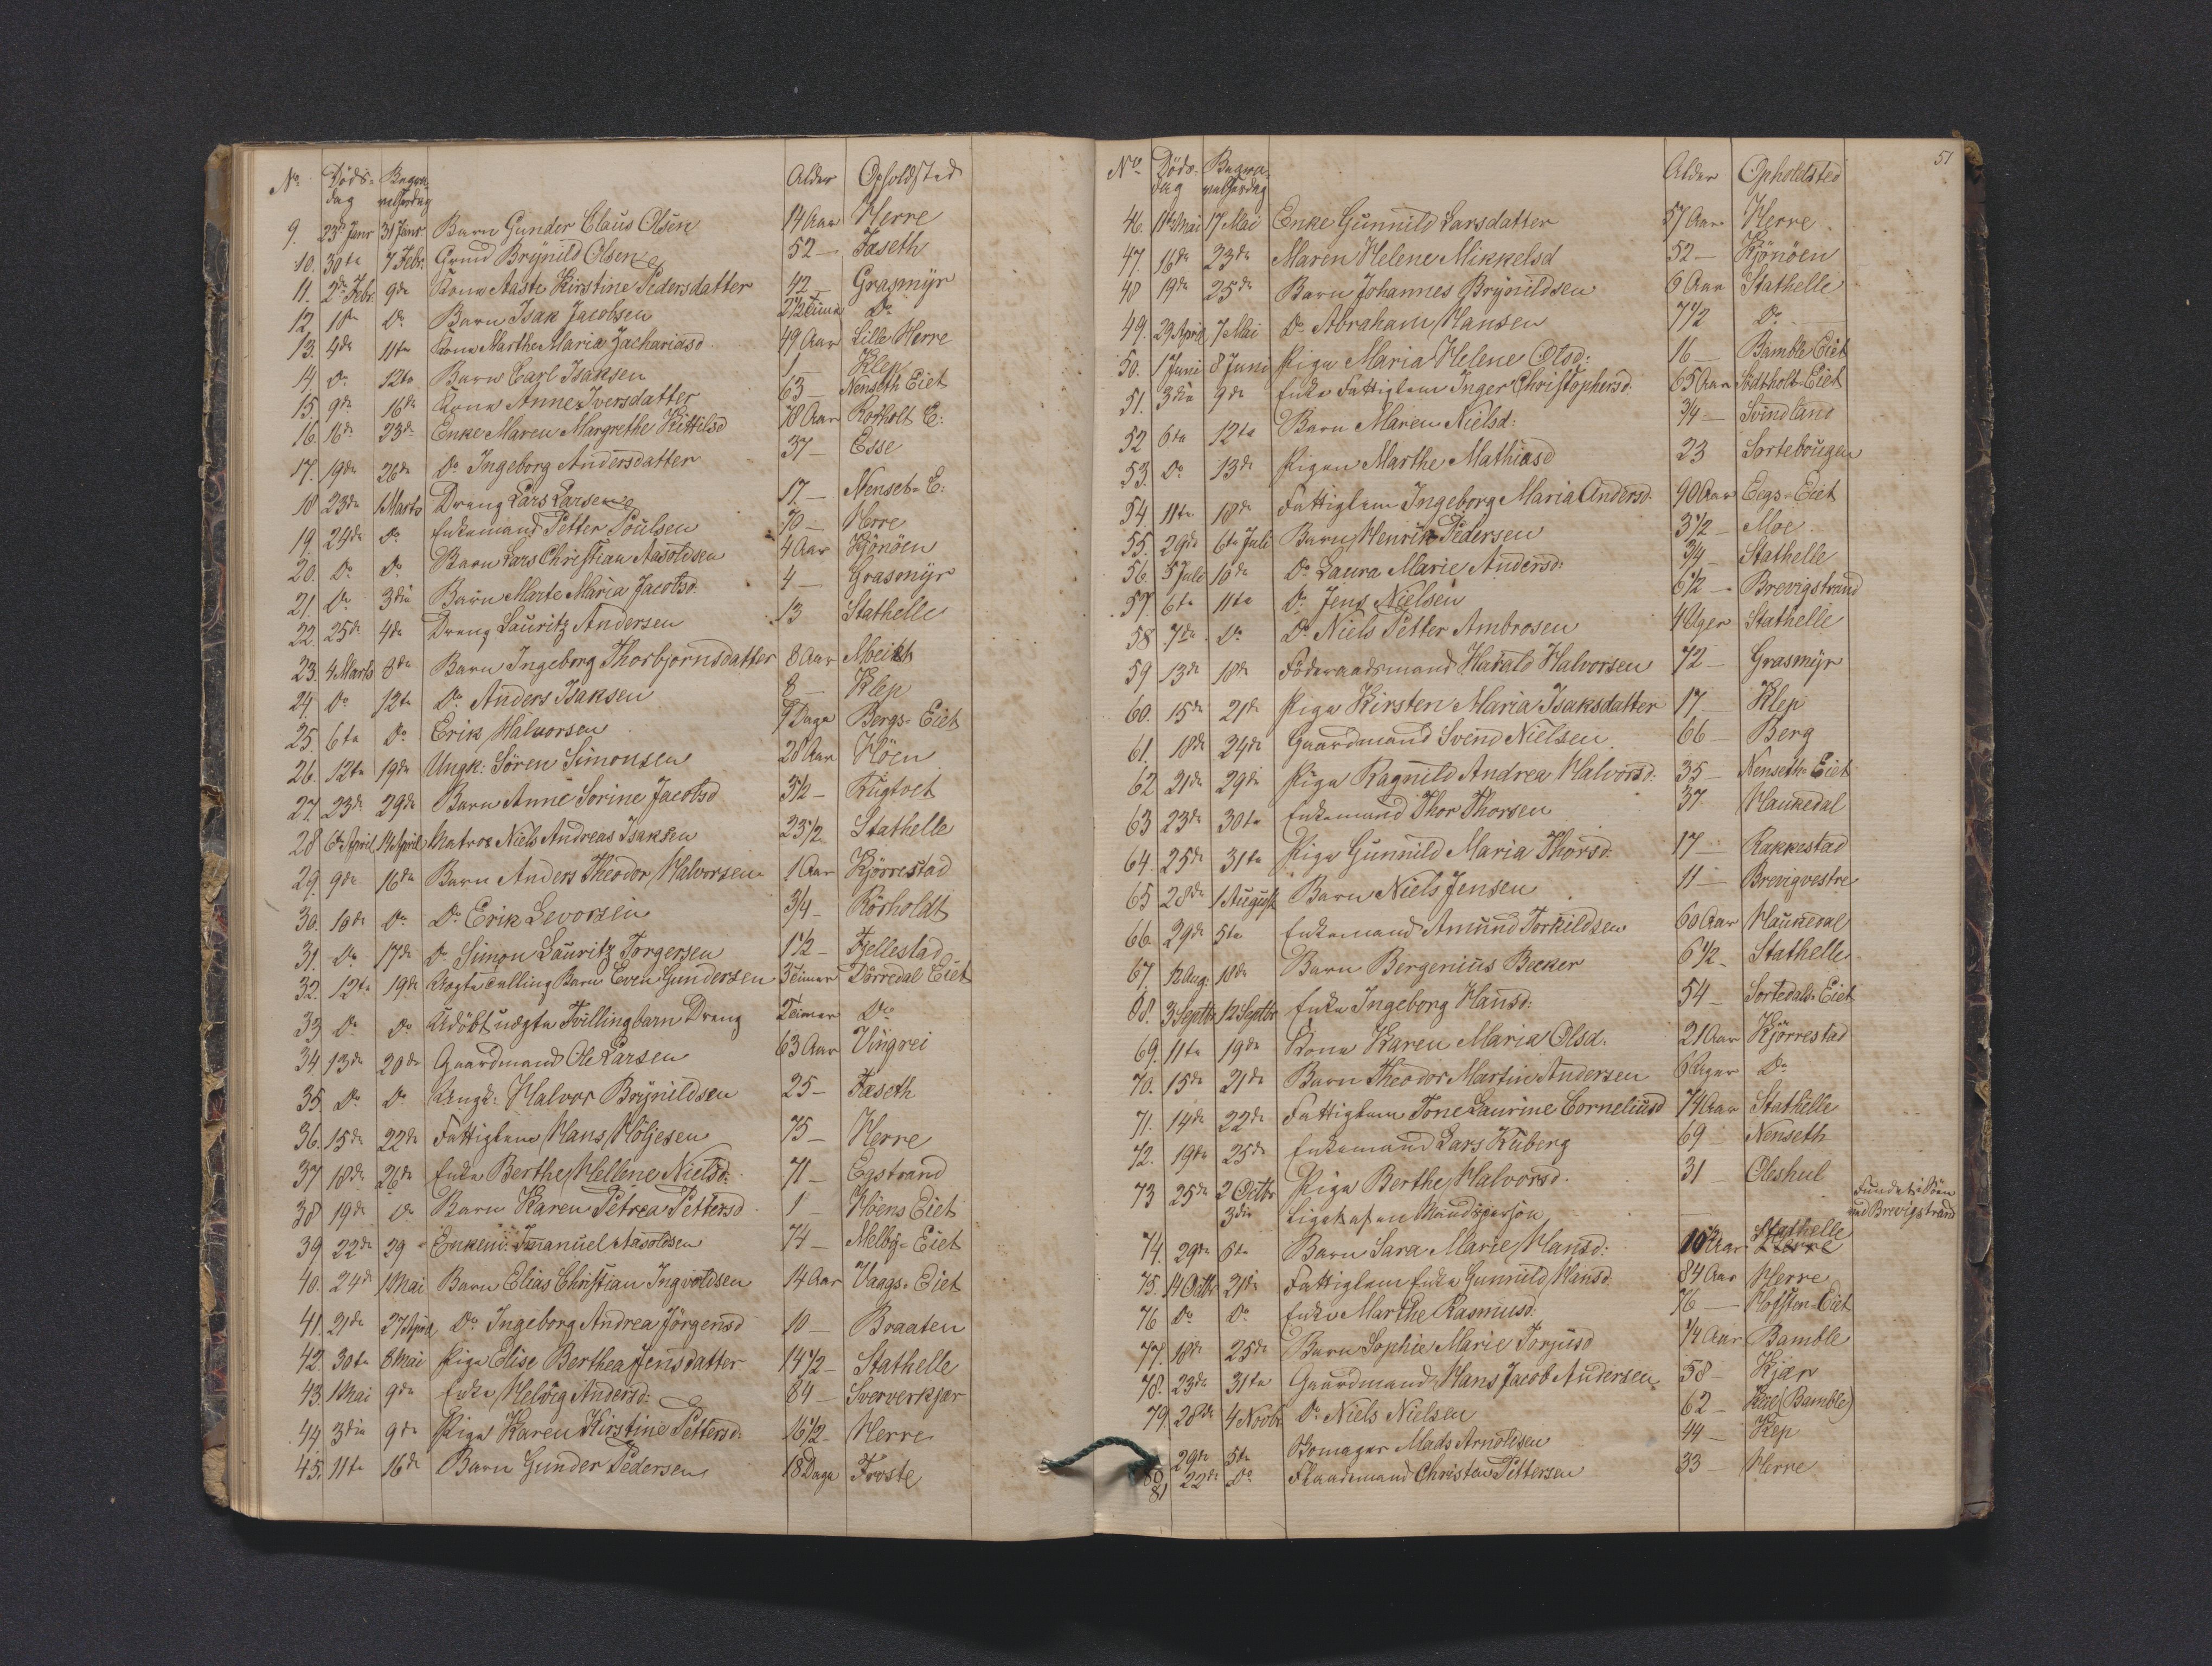 No Döds- Begra- Alder Opholdsted
dag velsesdag
9. 23de Janr 31 Janr Barn Gunder Claus Olsen 14 Aar Herre
10. 30te 7 Febr. Grmd Brynild Olsen 52 – Fæseth
11. 2de Febr. 9de Kone Aaste Kirstine Pedersdatter 42 – Grasmyr
12. 1ste Do Barn Isak Jacobsen 2 1/2 Time Do
13. 4de 11te Kone Marthe Maria Zachariasd. 49 Aar Lille Herre
14. Do 12te Barn Carl Isaksen 1 – Klep
15. 9de 16de Kone Anne Iversdatter 63 – Nenseth Eiet
16. 16de 23de Enke Maren Margrethe Kittilsd 78 Aar Rørholt E:
17. 19de 26de Do Ingeborg Andersdatter 37 – Esse
18 23de 1 Marts Dreng Lars Larsen 17. – Nenset-E:
19. 24de Do Enkemand Petter Poulsen 70 – Herre
20. Do Do Barn Lars Christian Aasoldsen 4 Aar Kjönöen
21. Do 3die Barn Marte Maria Jacobsd. 4 – Grasmyr
22. 25de 4de Dreng Lauritz Andersen 13 Stathelle
23. 4 Marts 8de Barn Ingeborg Thorbjornsdatter 8 Aar
24. Do 12te Do Anders Isaksen 8 – Klep
25. 6te Do Erik Halvorsen 7 Dage Bergs-Eiet
26. 12te 19de Ungk: Sören Simonsen 28 Aar Höen
27. 23de 29de Barn Anne Sorine Jacobsd 3 1/2 – Rugtvet
28 6te April 14 April Matros Niels Andreas Isaksen 23 1/2 Stathelle
29. 9de 16de Barn Anders Theodor Halvorsen 1 Aar Kjörrestad
30. 10de Do Do Erik Levorsen 3/4 – Rörholdt
31. Do 17de Do Simon Lauritz Torgersen 1 1/2 – Fjellestad
32. 12te 19de Uægte Tvilling Barn Even Gundersen 3 Timer Dörredal Eiet
33 Do Do Udöbt uægte Tvillingbarn Dreng Timer Do
34. 13de 20de Gaardmand Ole Larsen 63 Aar Vingrei
35. Do Do Ungk: Halvor Brynildsen 25 – Fæseth
36. 15de 22de Fattiglem Hans Höljesen 75 – Herre
37 18de 26de Enke Berthe Hellene Nielsd: 71 – Egstrand
38 19de Do Barn Karen Petrea Pettersd 1 – Höens Eiet
39 22de 29 – Enkem: Imanuel Aasoldsen 74 – Melby-Eiet
40. 24de 1 Mai Barn Elias Christian Ingvoldsen 14 Aar Vaags-Eiet
41. 21de 27 April Do Ingeborg Andrea Jörgensd 10 – Braaten
42. 30te 8 Mai Pige Elise Berthea Jensdatter 14 1/2 – Stathelle
43. 1 Mai 9de Enke Helvig Andersd: 84 – Sververkjær
44. 3die 9de Pige Karen Kirstine Pettersd: 16 1/2 – Herre
45. 11te 16de Barn Gunder Pedersen 18 Dage Froste
51
No Döds- Begra- Alder Opholdsted
dag velsesdag
46. 11te Mai 17 Mai Enke Gunnild Larsdatter 57 Aar Herre
47. 16de 23de Maren Helene Mikkelsd 52 – Kjönöen
48 19de 25de Barn Johannes Brynildsen 6 Aar Stathelle
49. 29 April 7 Mai Do Abraham Hansen 7 1/2 Do
50. 1 Juni 8 Juni Pige Maria Helene Olsd: 16 – Bamble Eiet
51. 3die 9de Enke Fattiglem Inger Christophersd. 65 Aar Södtholt-Eiet
52 6te 12te Barn Maren Nielsd: 3/4 – Svindland
53. Do 13de Pigen Marthe Mathiasd 23 Sortebougen
54. 11te 18de Fattiglem Ingeborg Maria Andersd. 90 Aar Eegs-Eiet
55. 29de 6te Juli Barn Henrik Pedersen 3 1/2 – Moe
56. 5 Juli 10de Do Laura Marie Andersd: 3/4 – Stathelle
57. 6te 11te Do Jens Nielsen 6 1/2 – Brevigstrand
58 7de Do Do Niels Petter Ambrosen 4 Uger Stathelle
59 13de 18de Föderaadsmand Harald Halvorsen 72 – Grasmyr
60. 15de 21de Pige Kirsten Maria Isaksdatter 17 – Klep
61. 18de 24de Gaardmand Svend Nielsen 66 – Berg
62 21de 29de Pige Ragnild Andrea Halvorsd: 35 – Nenseth-Eiet
63 23de 30te Enkemand Thor Thorsen 37 Haukedal
64. 25de 31te Pige Gunnild Maria Thorsd: 17 – Rakkestad
65 28de 1 August Barn Niels Jensen 11 – Brevigvestre
66. 29de 5te Enkemand Amund Torkildsen 60 Aar Haukedal
67. 12 Aug: 18de Barn Bergenius Becker 6 1/2 – Stathelle
68. 3 Septbr 12 Septbr Enke Ingeborg Hansd: 54 – Sortedals-Eiet
69. 11te 19de Kone Karen Maria Olsd. 21 Aar Kjörrestad
70. 15de 21de Barn Theodor Martin Andersen 6 Uger Do
71. 14de 22de Fattiglem Tone Laurine Corneliusd 74 Aar Stathelle
72. 19de 25de Enkemand Lars Kuberg 69 – Nenseth
73 25de 2 Octbr Pige Berthe Halvorsd. 31 – Oleshul
3die Liget af en Mandsperson – Fundet i Söen ved Brevigstrand
74. 29de 6te Barn Sara Marie Hansd: 10 1/2 Aar Stathelle
75. 14 Octbr 21de Fattiglem Enke Gunnild Hansd 84 Aar Herre
76 Do Do Enke Marthe Rasmusd: 76 – Hofsten-Eiet
77. 18de 25de Barn Sophie Marie Torjusd 1/4 Aar Bamble
78. 23de 31te Gaardmand Hans Jacob Andersen 58 – Kjær
79. 28de 4 Novbr Do Niels Nielsen 62 – (Bamble)
80 29de 5te Skomager Mads Arnoldsen 44 – Klep
81 22de Do Strandmand Christen Pettersen 33 – Herre